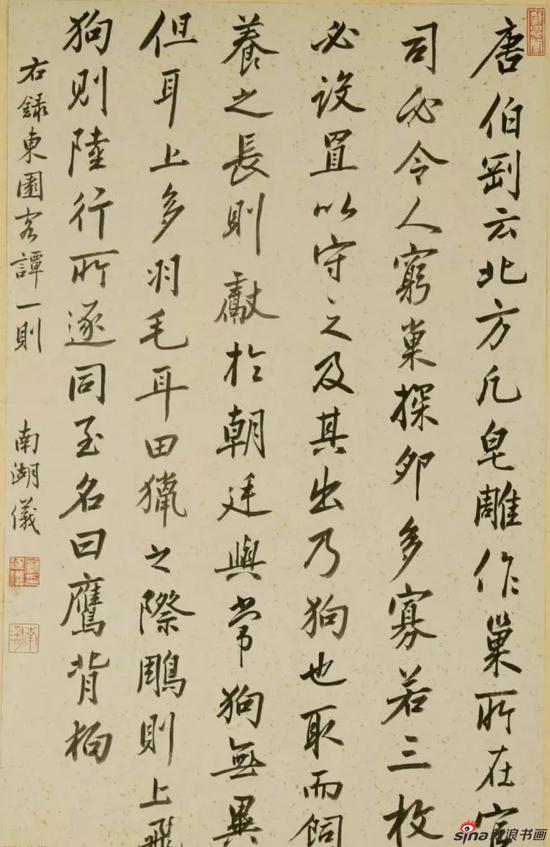 唐伯剛云北方凡皂雕作巢所在官
司必令人窮巢探卵多寡若三枚
必設置以守之及其出乃狗也取而飼
養之長則獻於朝廷與常狗無異
但耳上多羽毛耳田獵之際鵰則上飛
狗則陸行所逐同至名曰鷹背狗
右錄東園客譚一則
南湖儀
sina新浪书画